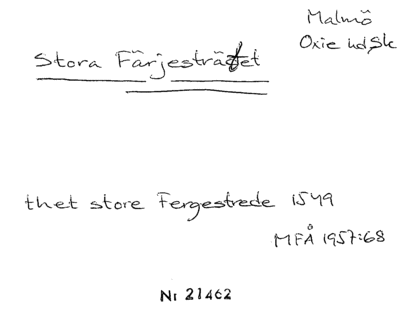 Malmö
Oxie hd Sk
Stora Färjesträtet
thet store Fergestrede 1549
MFÅ 1957:68
Nr 21462